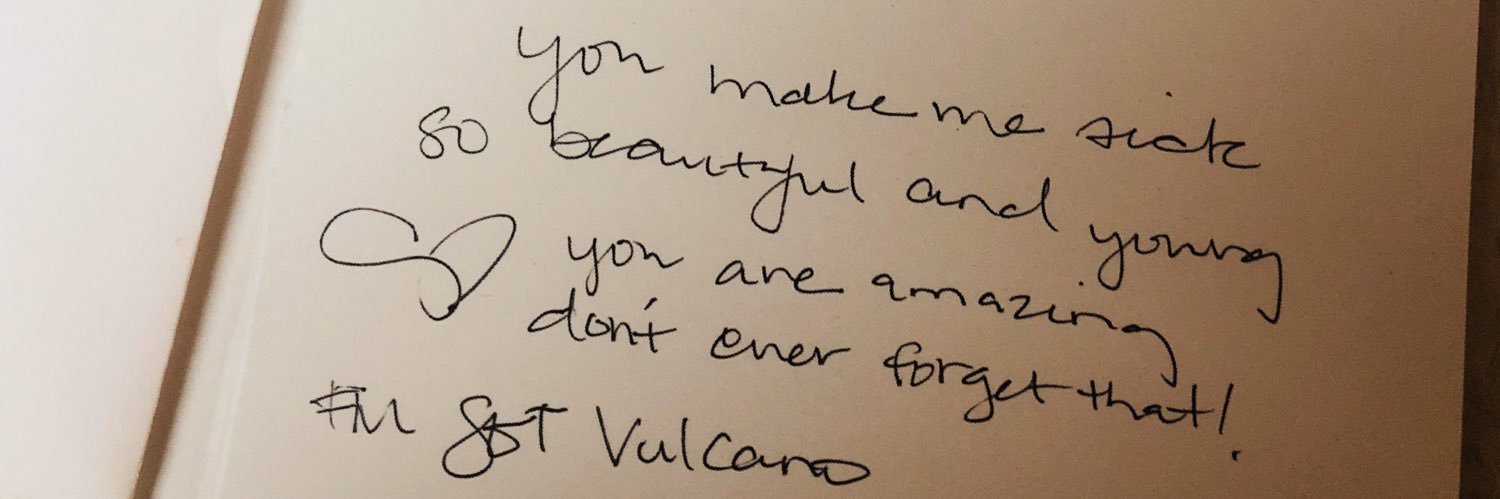 you make me sick
so beautiful and young
you are amazing
don't ever forget that!
Vulcano